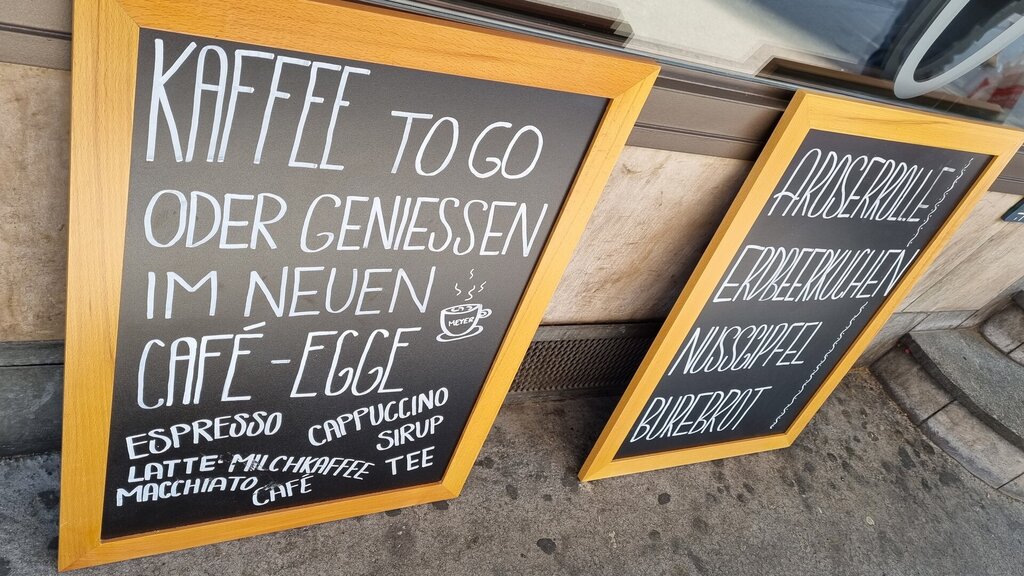 KAFFEE TO GO
ODER GENIESSEN
IM NEUEN
MEYER
CAFÉ-EGGE
ESPRESSO CAPPUCCINO
SIRUP
LATTE- MILCHKAFFEE TEE
MACCHIATO CAFÉ
AROSERROLLE
ERDBEERKUCHEN
NUSSGIPFEL
BUREBROT